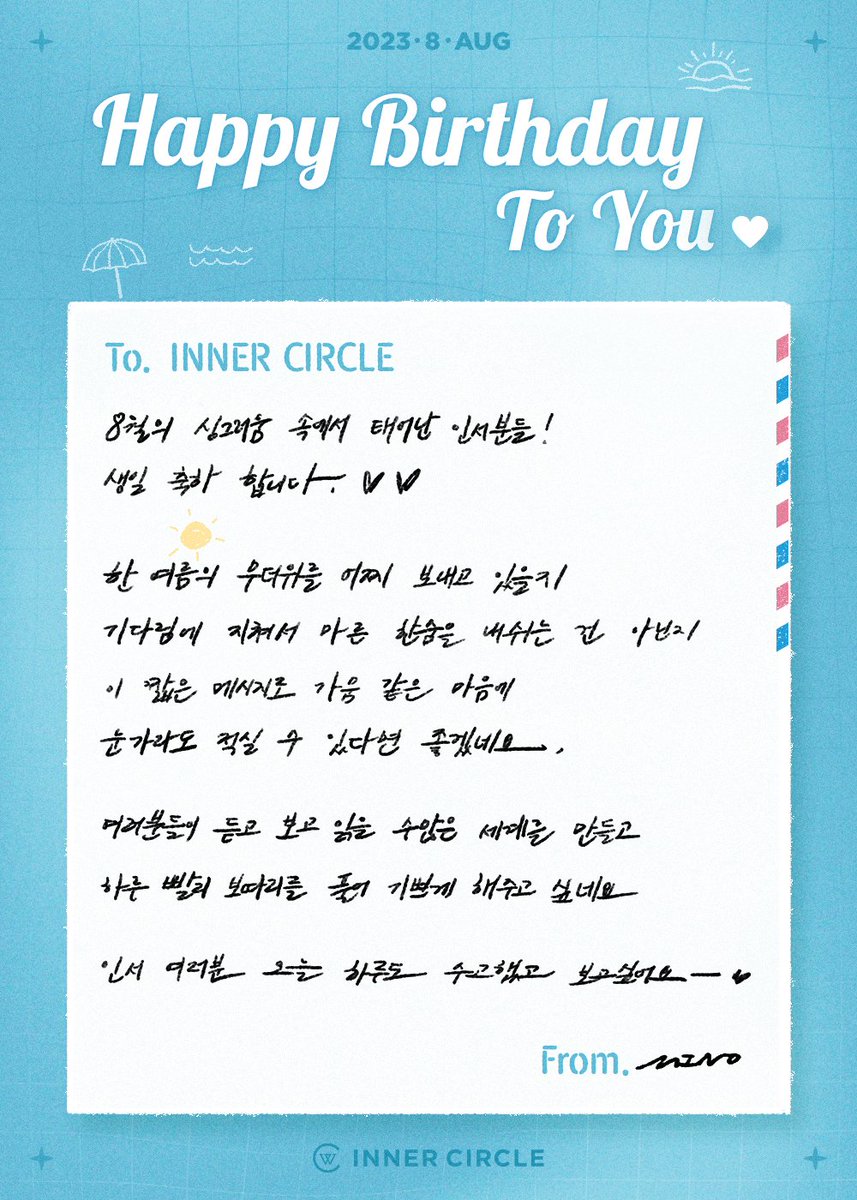 2023·8·AUG
Happy Birthday
To You
To. INNER CIRCLE
8월의 싱그러움 속에서 태어난 인서분들!
생일 축하 합니다.
한 여름의 무더위를 어찌 보내고 있을지
기다림에 지쳐서 마른 한숨을 내쉬는 건 아닌지
이 짧은 메시지로 가뭄 같은 마음에
눈가라도 적실 수 있다면 좋겠네요.
여러분들이 듣고 보고 읽을 수많은 세계를 만들고
하루 빨리 보따리를 풀어 기쁘게 해주고 싶네요
인서 여러분 오늘 하루도 수고했고 보고싶어요
From. MINO
W INNER CIRCLE